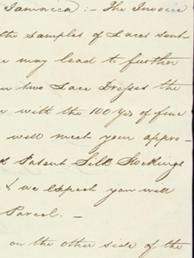 Jamaica :- The Invoice
the Samples of Laces sent
may lead to further
two Lace Dresses the
with the 100 Yds of fine
will meet your appro-
Patent Silk Stockings
& we expect you will
Parcel. -
on the other side of the